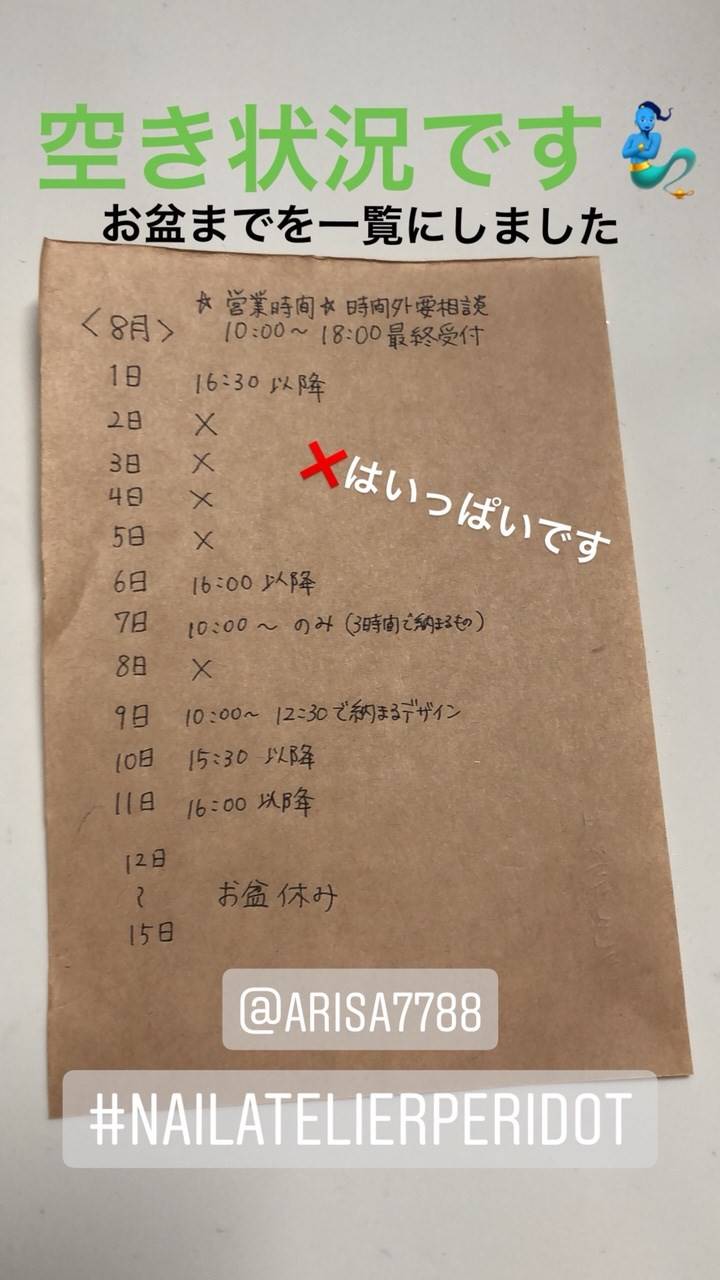 空き状況です
お盆までを一覧にしました
☆ 営業時間 ☆ 時間外要相談
<8月> 10:00〜 18:00 最終受付
1日 16:30 以降
2日 ×
3日 ×
❌はいっぱいです
4日 ×
5日 ×
6日 16:00 以降
7日 10:00 〜 のみ (3時間で納まるもの)
8日 ×
9日 10:00〜 12:30で納まるデザイン
10日 15:30 以降
11日 16:00 以降
12日
〜 お盆休み
15日
@ARISA7788
#NAILATELIERPERIDOT